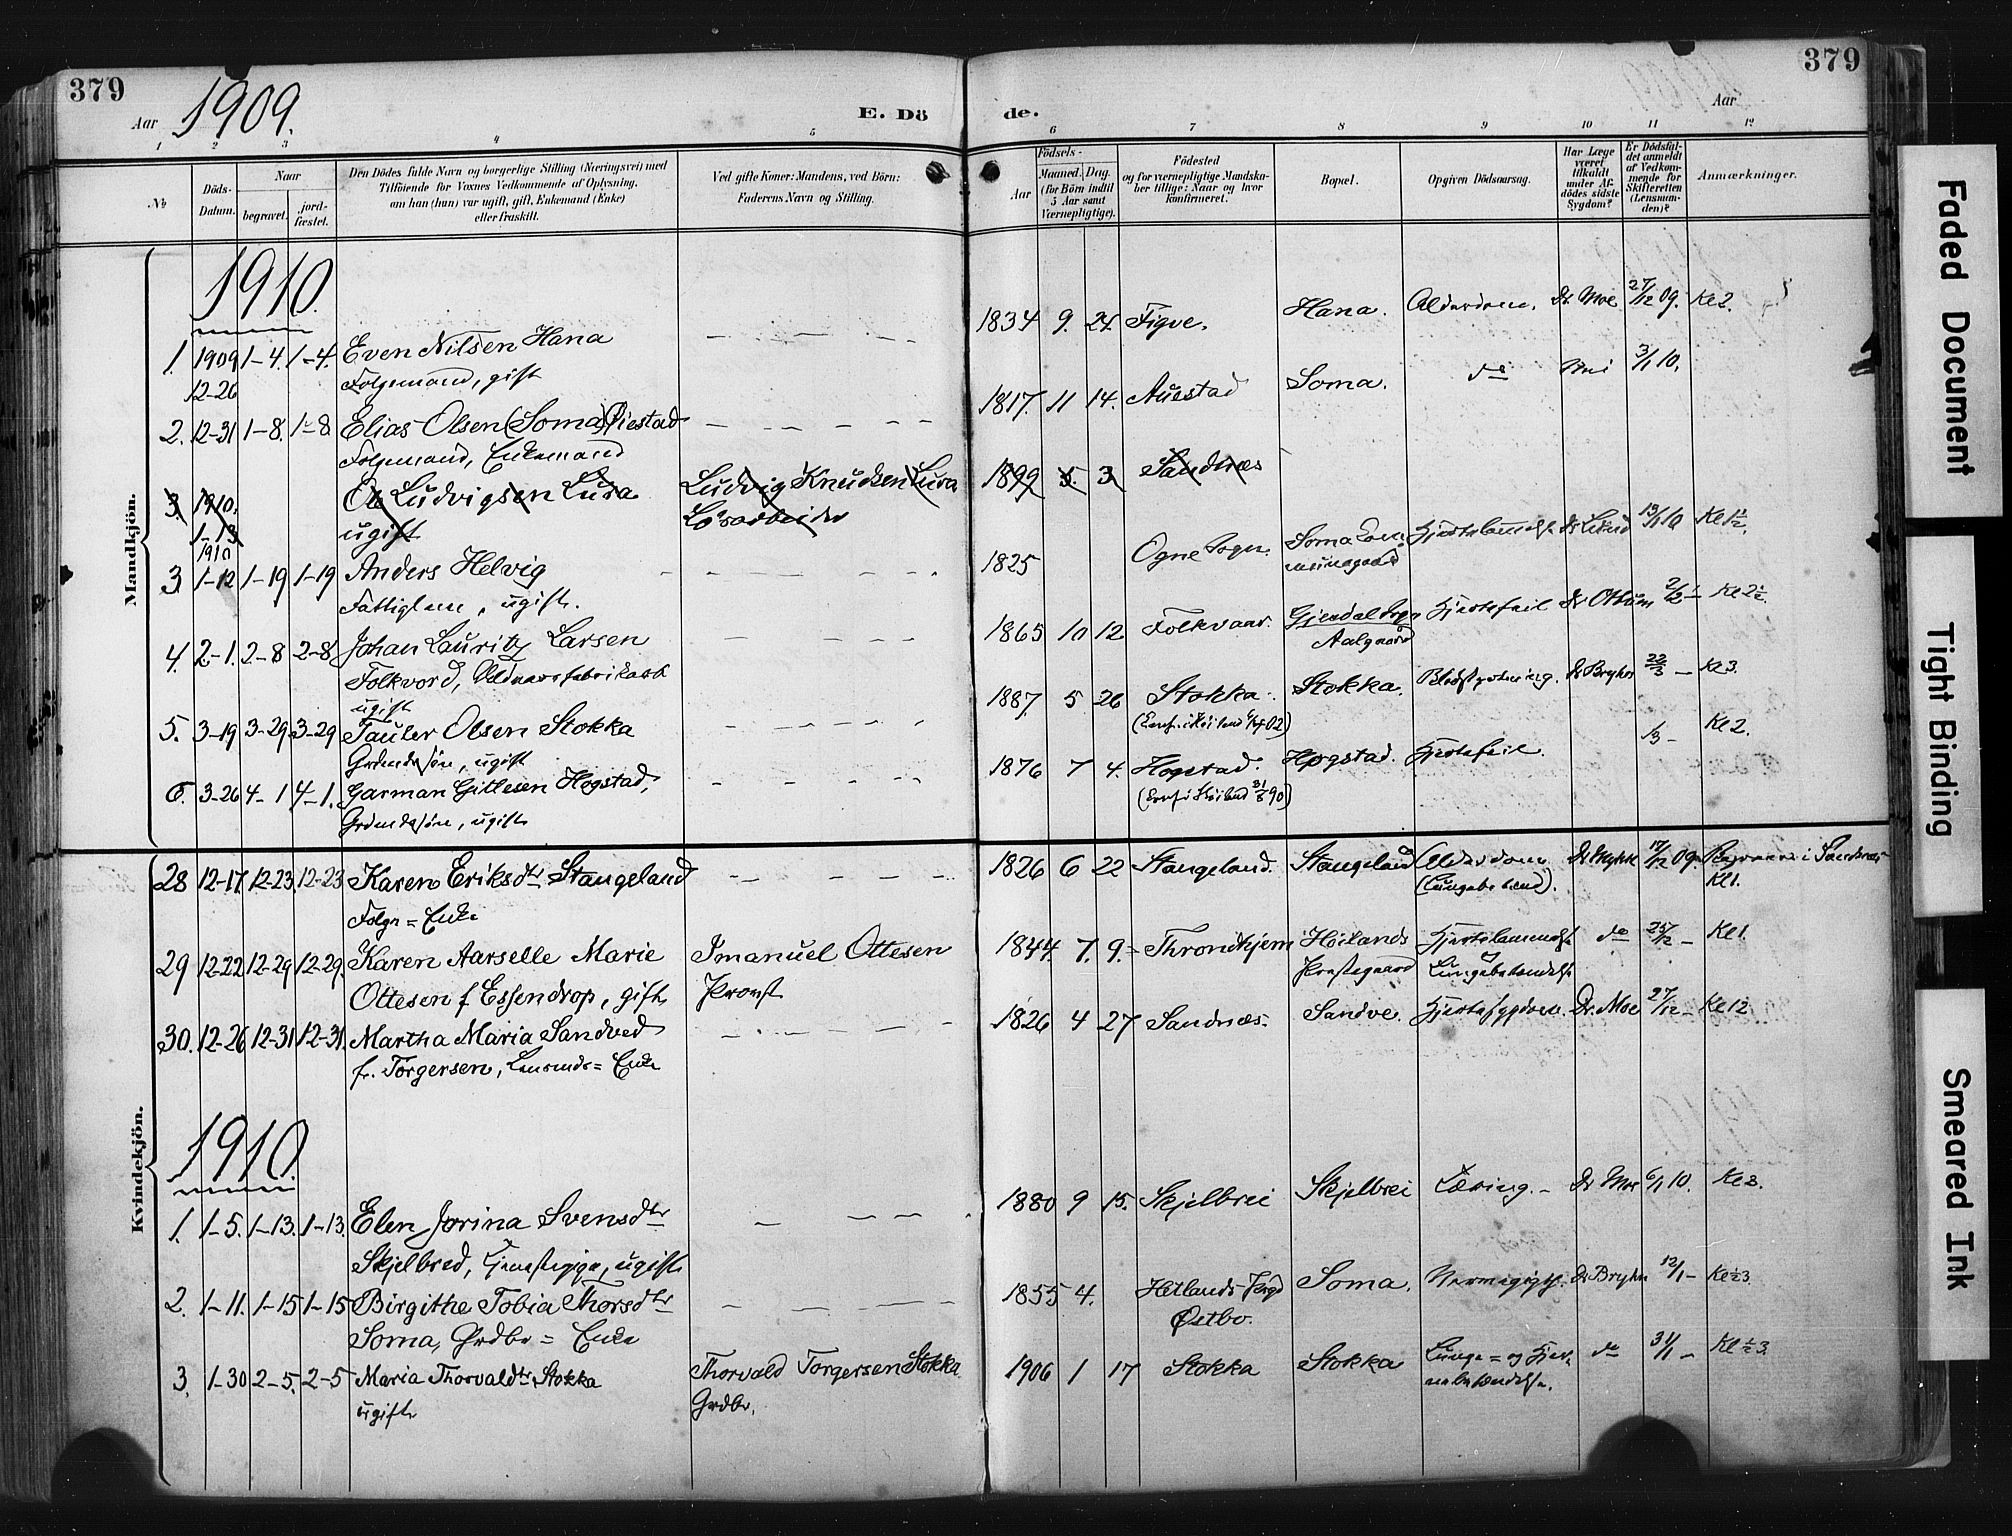 379
Aar 1909.
E. Dö
de.
Aar
379
1 2 3 4 5 6 7 8 9 10 11 12
No
Döds-Datum.
Naar
begravet.
jord-fæstet.
Den Dödes fulde Navn og borgerlige Stilling (Næringsvei) med
Tilföiende for Voxnes Vedkommende af Oplysning,
om han (hun) var ugift, gift, Enkemand (Enke)
eller fraskilt.
Ved gifte Koner: Mandens, ved Börn:
Faderens Navn og Stilling.
Födsels-
Aar
Maaned. Dag.
(for Börn indtil
5 Aar samt
Værnepligtige).
Födested
og for værnepligtige Mandska-
ber tillige: Naar og hvor
konfirmeret.
Bopæl.
Opgiven Dödsaarsag.
Har Læge
været
tilkaldt
under Af-
dödes sidste
Sygdom?
Er Dödsfal-
det anmeldt
af Vedkom-
mende for
Skifteretten
(Lensman-
den)?
Anmærkninger.
Mandkjön.
1910.
1. 1909 1-4. 1-4. Even Nilsen Hana 1834 9. 24. Figve. Hana. Alderdom. Dr Moe 27/12 09. Kl 2.
12-26 Folgemand, gift
2. 12-31 1-8. 1-8. Elias Olsen (Soma) Öiestad 1817. 11 14. Auestad Soma. do Nei 3/1 10.
Folgemand, Enkemand
3. 1910. Ole Ludvigsen Lura Ludvig Knudsen Lura 1899 5. 3 Sandnæs
1-13 ugift Løsarbeider
1910
3. 1-12 1-19 1-19 Anders Helvig 1825 Ogne Sogn. Soma 13/1 10
Fattiglem, ugift.
4. 2-1. 2-8 2-8 Johan Lauritz Larsen 1865 10 12 Folkvaar Gjesdal Sogn Hjertefeil
Folkvord, ugift Aalgaard
5. 3-19 3-29 3-29 Tauler Olsen Stokka 1887. 5 26 Stokka. Stokka. Blodstyrtning. Dr Bryhn 22/3 – Kl 3.
Grdmdssøn, ugift
6. 3-26 4-1 4-1. Garman Gittesen Høgstad, 1876 7 4. Høgstad. Høgstad. Hjertefeil. Kl 2.
Grdmdssøn, ugift
Kvindekjön.
28 12-17 12-23 12-23 Karen Eriksdtr Stangeland 1826 6 22 Stangeland. Stangeland Alderdom 17/12 09. Begraven i Sandnæs
Folge = Enke Kl 1.
29 12-22 12-29 12-29. Karen Aarselle Marie Imanuel Ottesen 1844 7. 9. Throndhjem Höilands do Kl 1.
Ottesen f. Essendrop, gift Provst Præstegaard
30. 12-26 12-31 12-31. Martha Maria Sandved 1826 4 27 Sandnæs. Sandve. Hjertesygdom. Dr. Moe 27/12 – Kl 12
f. Torgersen, Lensmds = Enke
1910.
1. 1-5. 1-13. 1-13. Elen Jorina Svensdtr 1880 9 15. Skjelbrei Skjelbrei Tæring. – Dr Moe 6/1 10. Kl 3.
Skjelbred, Tjenestepige, ugift
2. 1-11. 1-15 1-15 Birgithe Tobia Thorsdtr 1855 4. Hetlands Soma. Dr Bryhn 12/1 –
Soma, Grdbr = Enke Østbø.
3. 1-30 2-5. 2-5 Maria Thorvaldtr Stokka Thorvald Torgersen Stokka 1906 1 17 Stokka Stokka do 31/1 –
ugift Grdbr.
Faded Document
Tight Binding
Smeared Ink